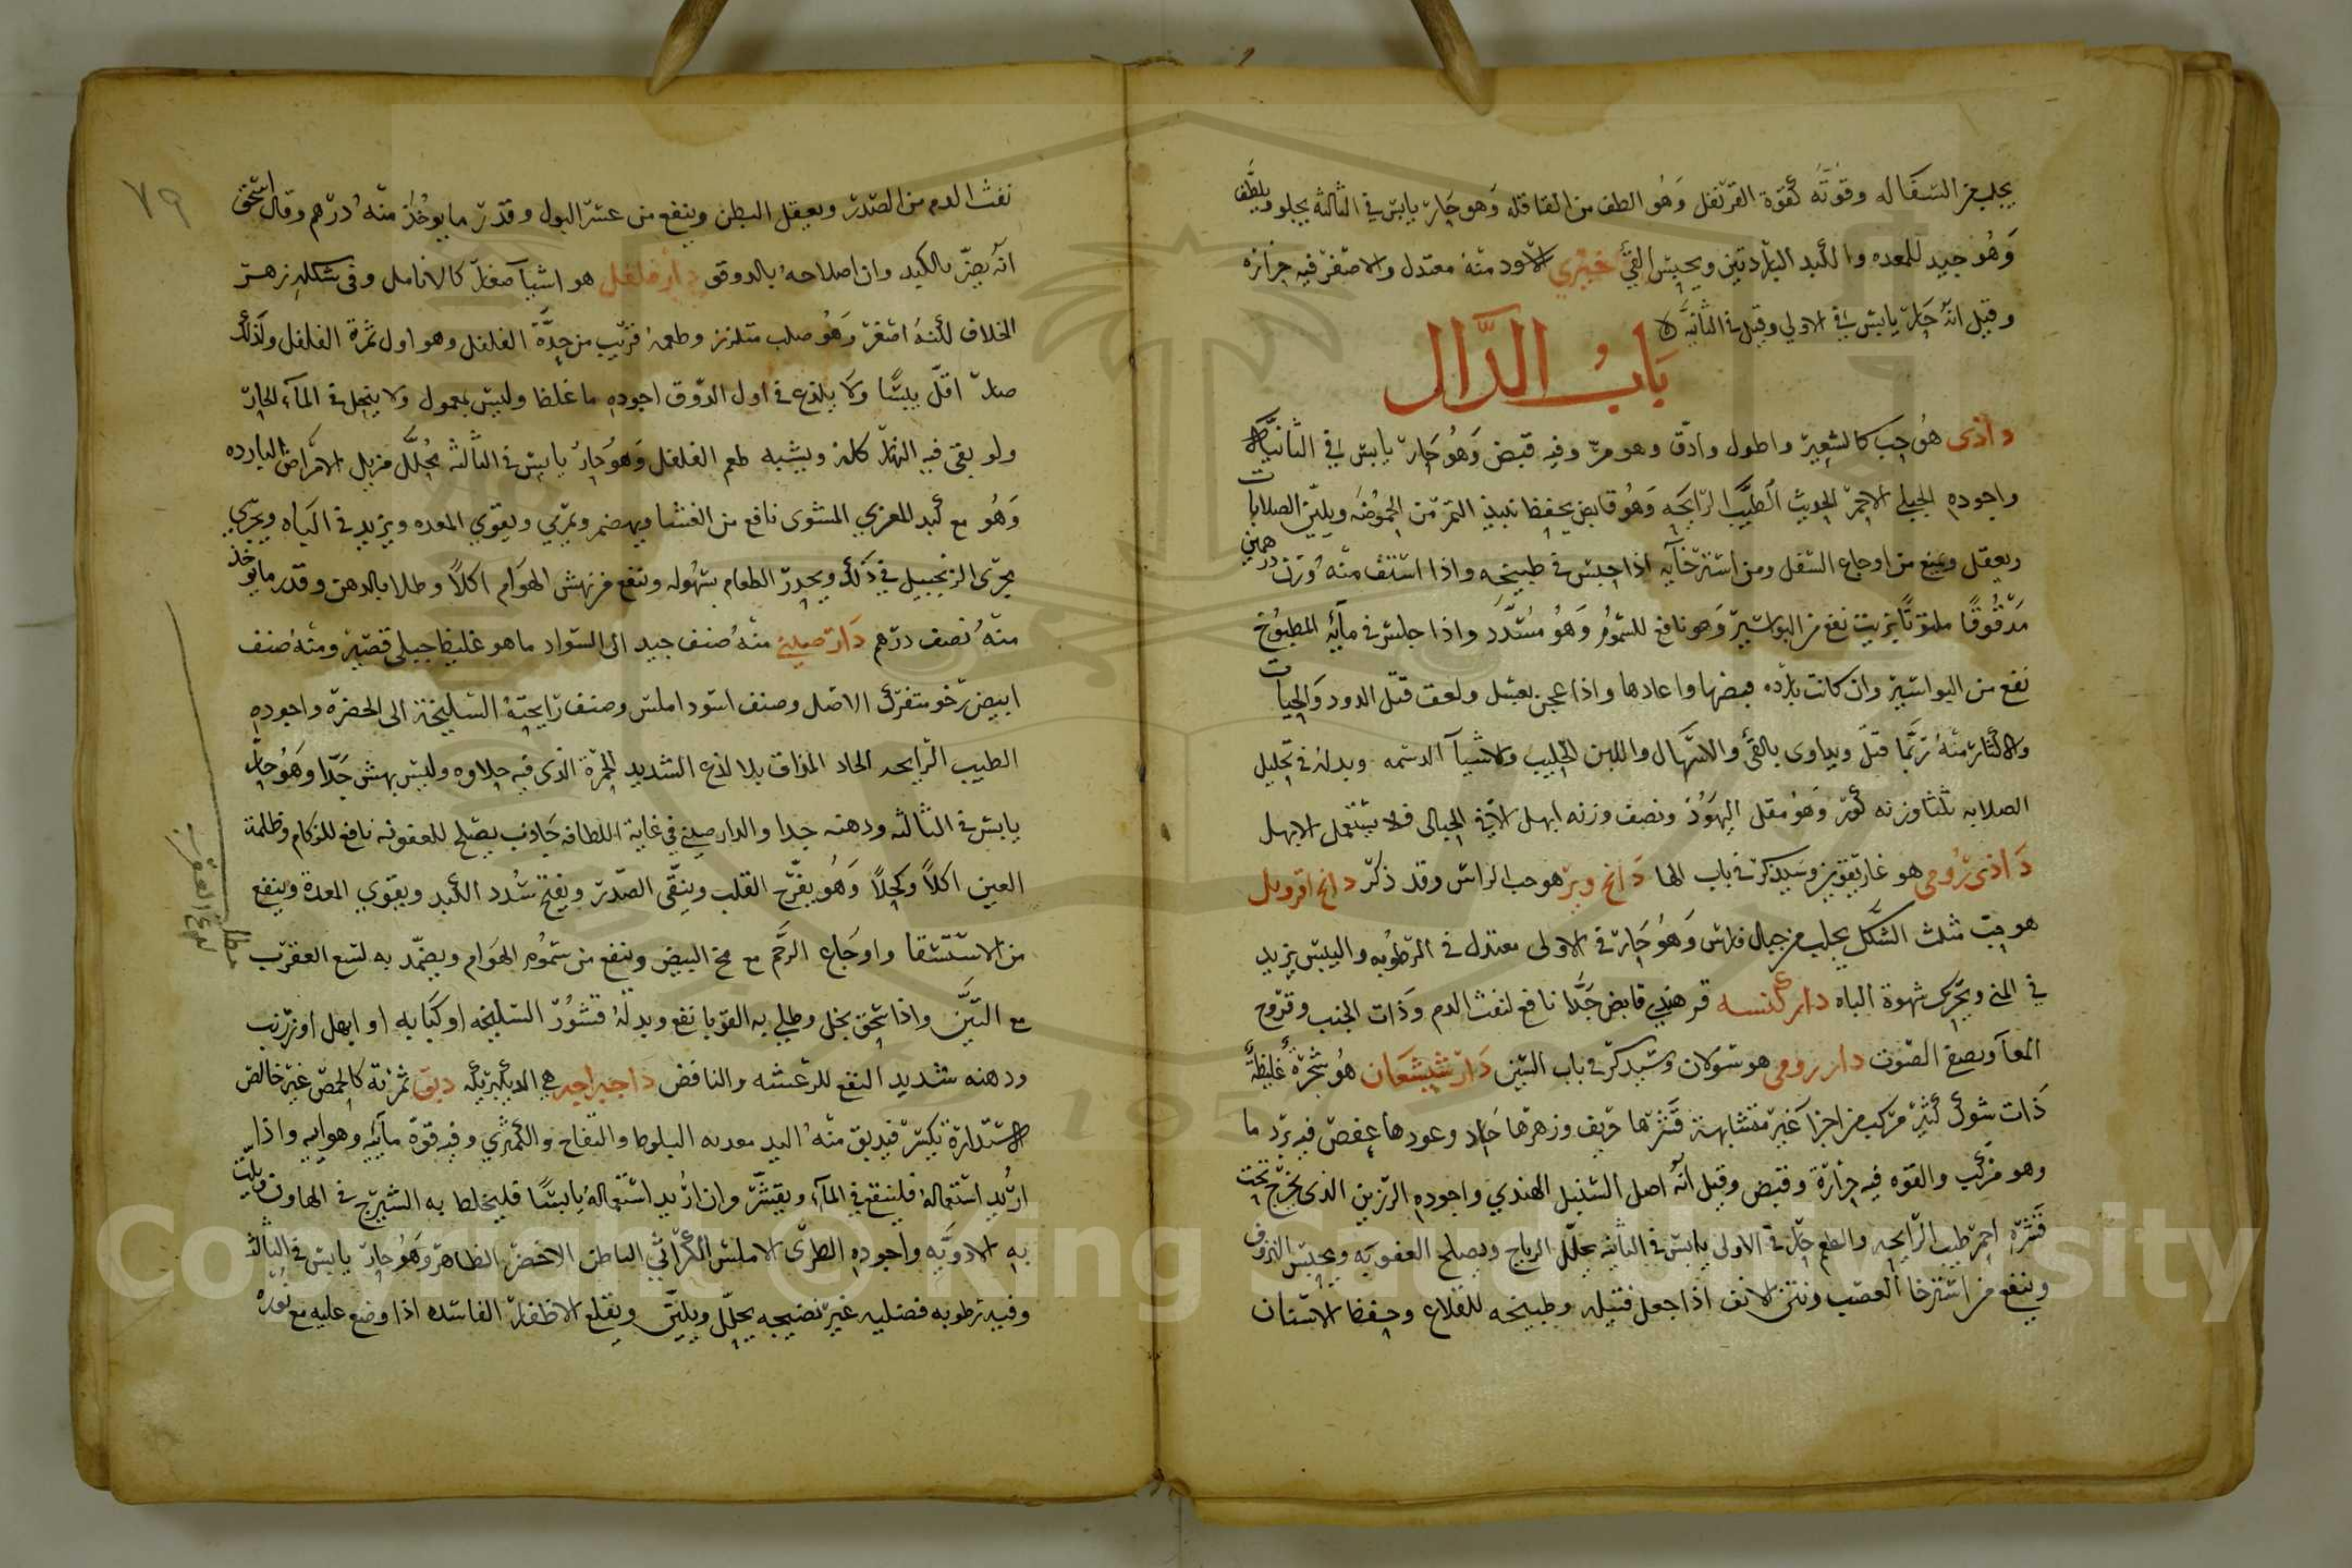 يجلب من السقاله وقوته كقوة القرنفل وهو الطف من القاقله وهو حار يابس في الثالثه يجلو ويلطف
وهو جيد للمعده والكبد الباردتين ويحبس القئ خيري الاسود منه معتدل والاصفر فيه حرارة
وقيل انه حار يابس في الاولى وقيل في الثانيه
باب الدال
داذى هو حب كالشعير واطول وادق وهو مر وفيه قبض وهو حار يابس في الثانية
واجوده الجبلي الاحمر الحديث الطيب الرايحه وهو قابض يحفظ نبيذ التمر من الحموضه ويلين الصلابات
ويعقل وينفع من اوجاع السفل ومن استرخايه اذا جلس في طبيخه واذا استف منه وزن درهمين
مدقوقا ملتوتا بزيت نفع من البواسير وهو نافع للسموم وهو مسدد واذا جلس في مآيه المطبوخ
نفع من البواسير وان كانت بارده قبضها واعادها واذا عجن بعسل ولعق قتل الدود والحيات
والاكثار منه ربما قتل ويداوى بالقئ والاسهال واللبن الحليب والاشيآ الدسمه وبدله في تحليل
الصلابه ثلثا وزنه كور وهو مقل اليهود ونصف وزنه ابهل الا في الحبالى فلا يستعمل الابهل
داذى رومي هو غاريقون وسيذكر في باب الها دانج وبز هو حب الراس وقد ذكر دانج ابرويل
هو حب مثلث الشكل يجلب من جبال فارس وهو حار في الاولى معتدل في الرطوبه واليبس يزيد
في المنى ويحرك شهوة الباه دار كنسه قرهندي قابض جدا نافع لنفث الدم وذات الجنب وقروح
المعآ ويصفى الصوت دار رومي هو سولان وسيذكر في باب السين دارشيشعان هو شجرة غليظة
ذات شوك كثير مركب من اجزا غير متشابهة قشرها حريف وزهرها حار وعودها عفص فيه برد ما
وهو مركب والقوه فيه حرارة وقبض وقيل انه اصل السنبل الهندي واجوده الرزين الذى يخرج تحت
قشره احمر طيب الرايحه والطعم حار في الاولى يابس في الثانيه يحلل الرياح ويصلح العفونه ويحبس النزوف
وينفع من استرخا العصب ونتن الانف اذا جعل فتيله وطبيخه للقلاع وحفظ الاسنان
٧٩
نفث الدم من الصدر ويعقل البطن وينفع من عسر البول وقدر ما يوخذ منه درهم وقال اسحق
انه يضر بالكبد وان اصلاحه بالدوقو دارفلفل هو اشيآ صغار كالانامل وفي شكله زهر
الخلاف لكنه اصغر وهو صلب متلزز وطعمه قريب من حدة الفلفل وهو اول ثمرة الفلفل ولذلك
صار اقل يبسا ولا يلذع في اول الذوق اجوده ما غلظ وليس بمعمول ولا ينحل في المآء الحار
ولو بقي فيه النهار كله ويشبه طعم الفلفل وهو حار يابس في الثالثه يحلل مزيل الامراض البارده
وهو مع كبد المعز المشوى نافع من الغشا ويهضم ويمري ويقوي المعده ويزيد في الباه ويجري
مجرى الزنجبيل في ذلك ويحدر الطعام بسهوله وينفع من نهش الهوام اكلا وطلا بالدهن وقدر مايوخذ
منه نصف درهم دارصيني منه صنف جيد الى السواد ما هو غليظ جبلي قصير ومنه صنف
ابيض رخو متفرك الاصل وصنف اسود املس وصنف رايحته السليخة الى الحضرة واجوده
الطيب الرايحه الحاد المذاق بلا لذع الشديد الحمرة الذى فيه حلاوه وليس بهش جدا وهو حار
يابس في الثالثه ودهنه جدا والدارصيني في غاية اللطافه جاذب يصلح للعفونه نافع للزكام وظلمة
العين اكلا وكحلا وهو يفرح القلب وينقى الصدر ويفتح سدد الكبد ويقوي المعدة وينفع
من الاستسقا واوجاع الرحم مع مخ البيض وينفع من سموم الهوام ويضمد به لسع العقرب
مع التين واذا سحق بخل وطلي به القوبا نفع وبدله قشور السليخه او كبابه او ابهل او زرنب
ودهنه شديد النفع للرعشه والنافض داجيراجه هي الديكبريكه دبق ثمرته كالحمص غير خالص
الاستدارة يكسر فيدبق منه اليد معدنه البلوط والتفاح والكمثري وفيه قوة مآييه وهواييه واذا
اريد استعماله فلينقع في المآء ويقشر وان اريد استعماله يابسا فليخلط به الشيرج في الهاون ويلت
به الادويه واجوده الطرى الاملس الكراثي الباطن الاخضر الظاهر وهو حار يابس في الثالثه
وفيه رطوبه فضليه غير نضيجه يحلل ويلين ويقلع الاظفار الفاسده اذا وضع عليه مع نوره
مطلب
لسع العقرب
Copyright © King Saud University
1957